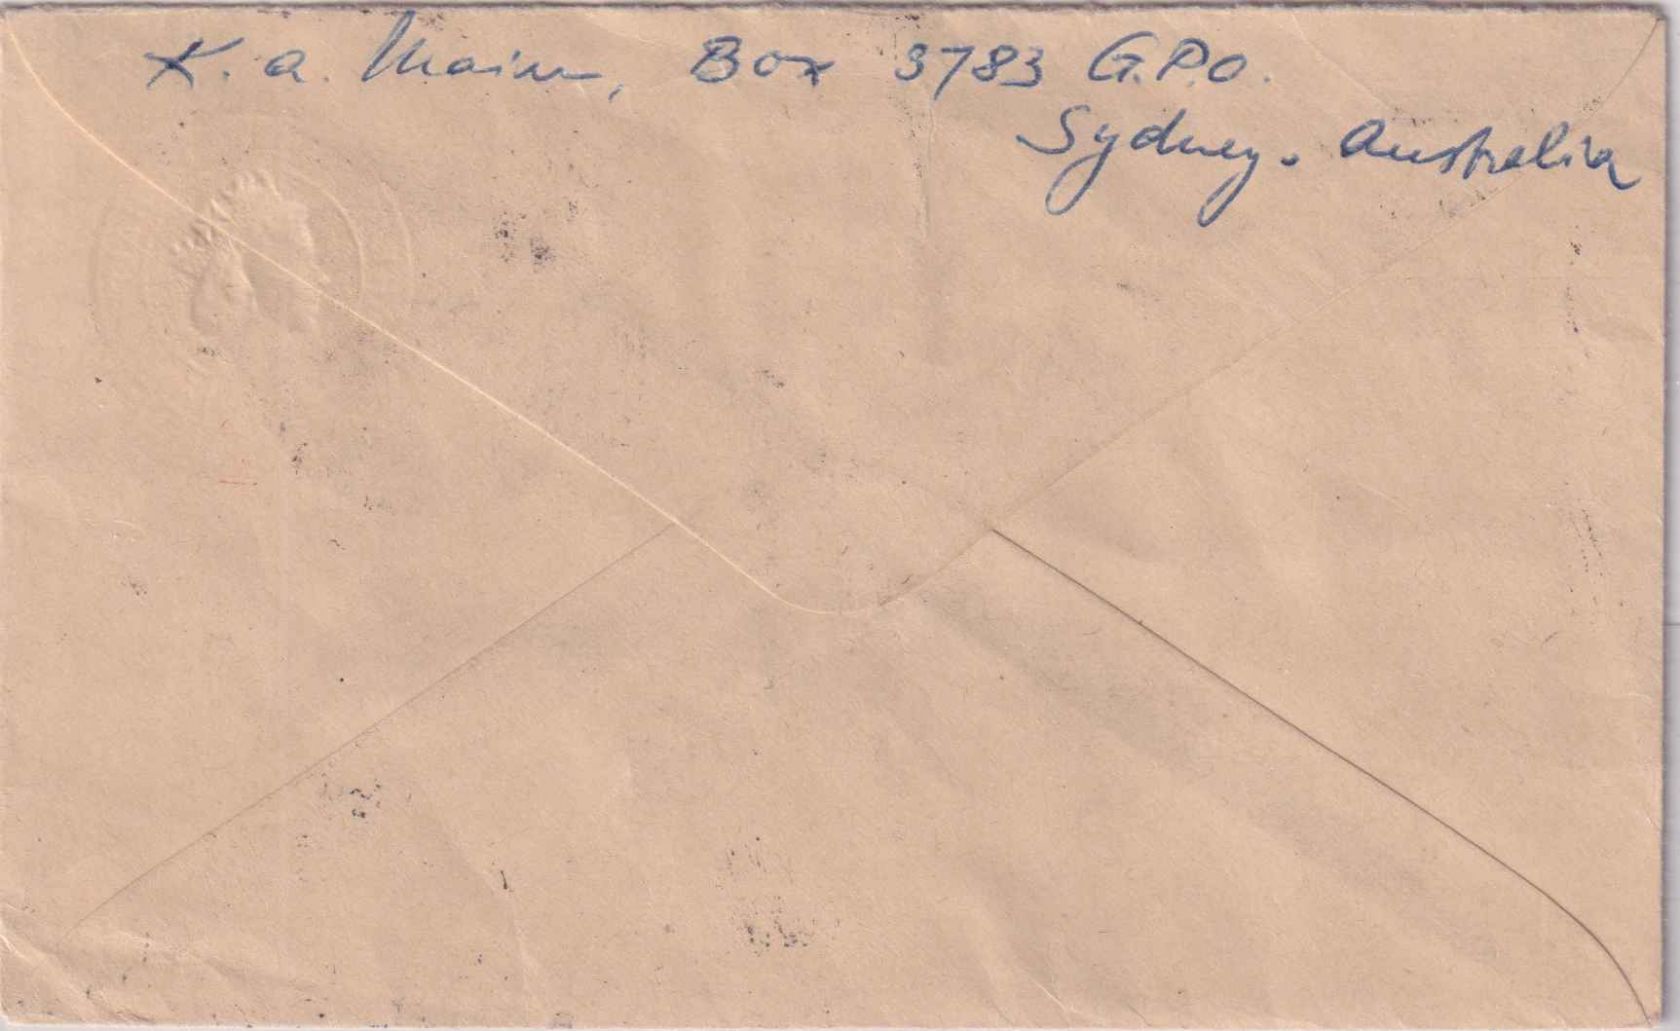 K. A. Main, Box 3783 G.P.O.
Sydney. Australia